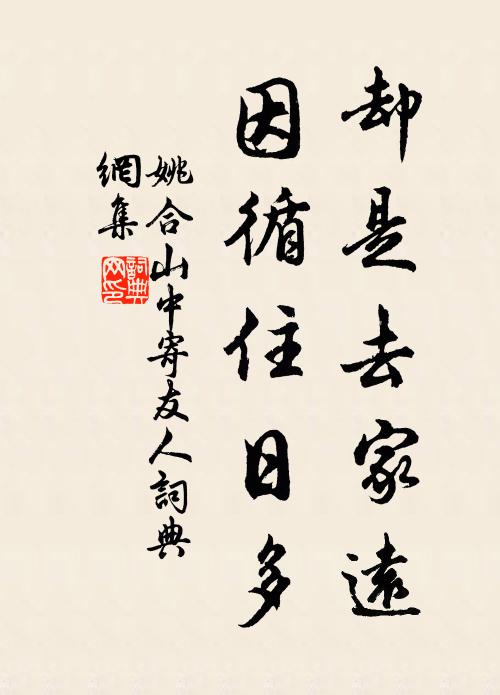 却是去家遠
因循住日多
姚合山中寄友人詞典
網集
詞典網印